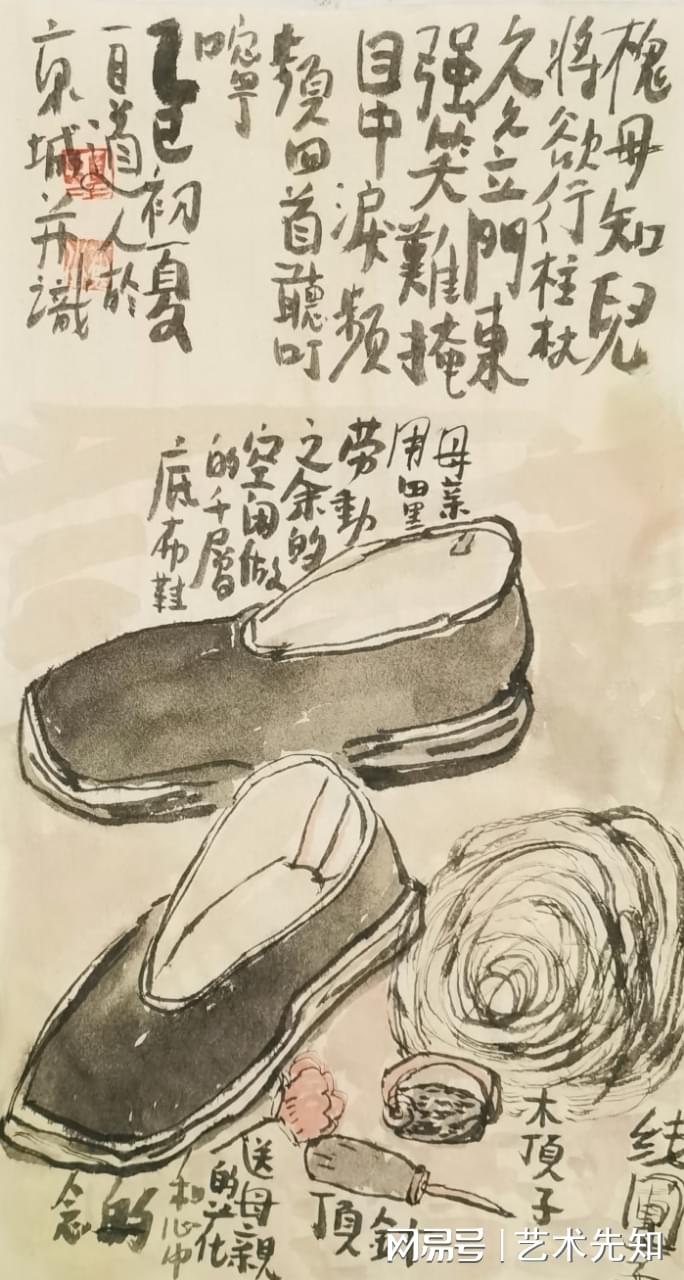 槐母知兒
將欲行柱杖
久久立門東
强笑難掩
目中淚頻
頻回首聽叮
嚀
乙巳初夏
百道人於
京城并識
母亲
用田里
劳動
之余的
空闲做
的千層
底布鞋
线團
木頂子
頂針
送母親
的花
和心中
的
念
网易号 | 艺术先知